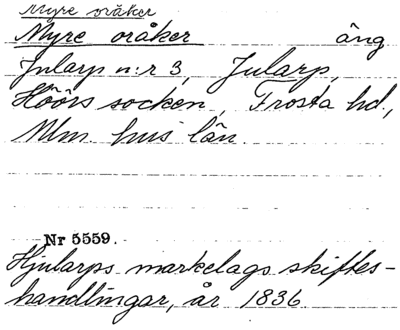 Myre oråker
Myre oråker äng
Jularp n:r 3, Jularp,
Höörs socken, Frosta hd.,
Mlm. hus län.
Nr 5559.
Hjularps markelags skiftes-
handlingar, år 1836